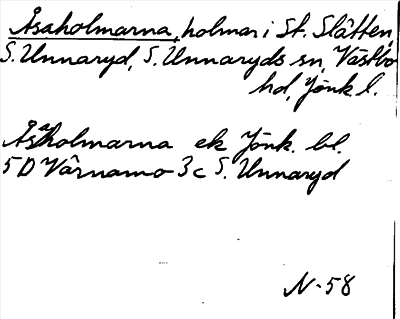 Åsaholmarna, holmar i St. Slätten,
S. Unnaryd, S. Unnaryds sn, Västbo
hd, Jönk l.
Åsaholmarna ek Jönk. bl.
5D Värnamo 3c S. Unnaryd
N-58